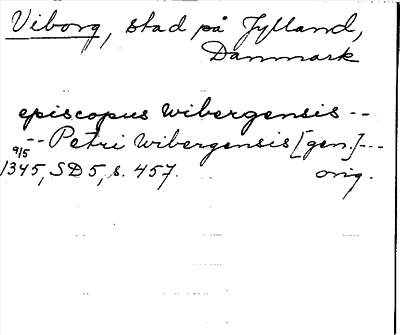 Viborg, stad på Jylland,
Danmark
episcopus Wibergensis --
-- Petri Wibergensis [gen.] ---
9/5
1345, SD 5, s. 457. orig.